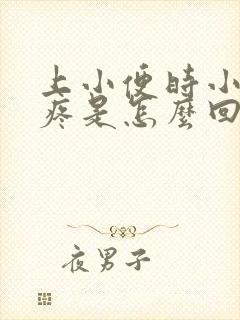 上小便時小
疼是怎麼回
夜男子